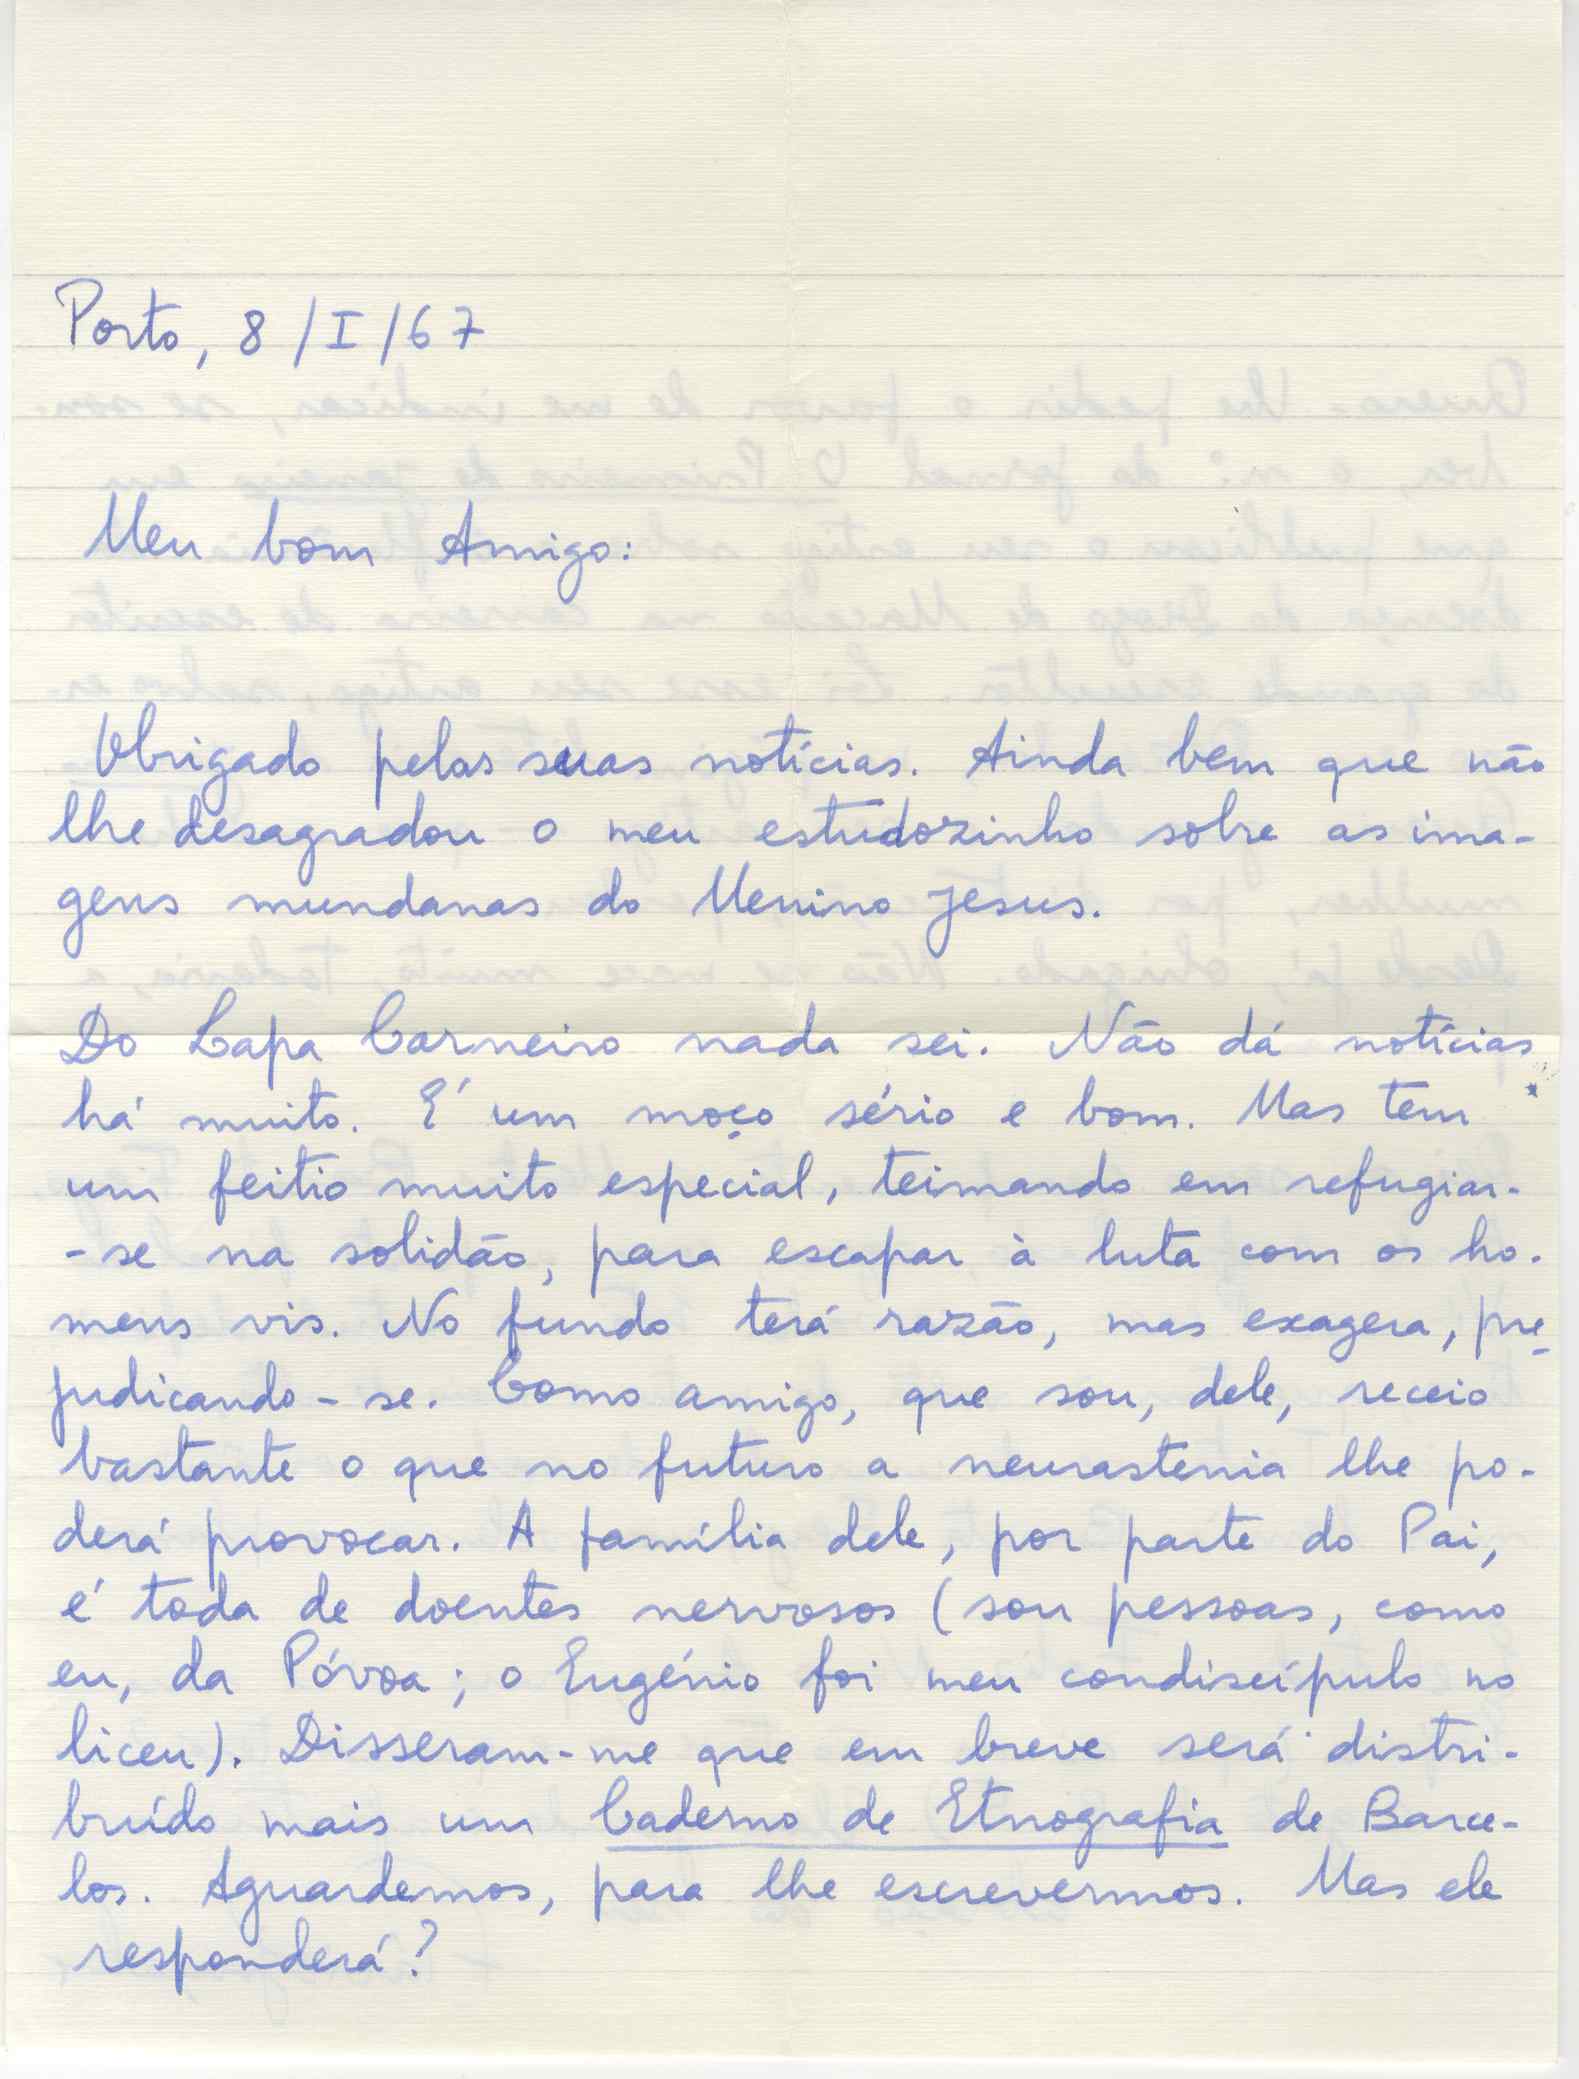 Porto, 8/I/67
Meu bom Amigo:
Obrigado pelas suas notícias. Ainda bem que não
lhe desagradou o meu estudozinho sobre as ima-
gens mundanas do Menino Jesus.
Do Lapa Carneiro nada sei. Não dá notícias
há muito. É um moço sério e bom. Mas tem
um feitio muito especial, teimando em refugiar-
-se na solidão, para escapar à luta com os ho-
mens vis. No fundo terá razão, mas exagera, pre-
judicando-se. Como amigo, que sou, dele, receio
bastante o que no futuro a neurastenia lhe po-
derá provocar. A família dele, por parte do Pai,
é toda de doentes nervosos (sou pessoas, como
eu, da Póvoa; o Eugénio foi meu condiscípulo no
liceu). Disseram-me que em breve será distri-
buído mais um Caderno de Etnografia de Barce-
los. Aguardemos, para lhe escrevermos. Mas ele
responderá?